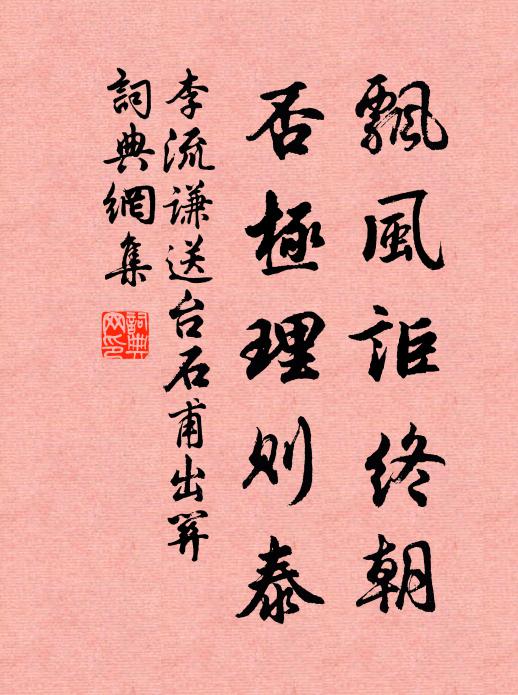 飄風詎終朝
否極理則泰
李流謙送台石甫出關
詞典網集
詞典網印